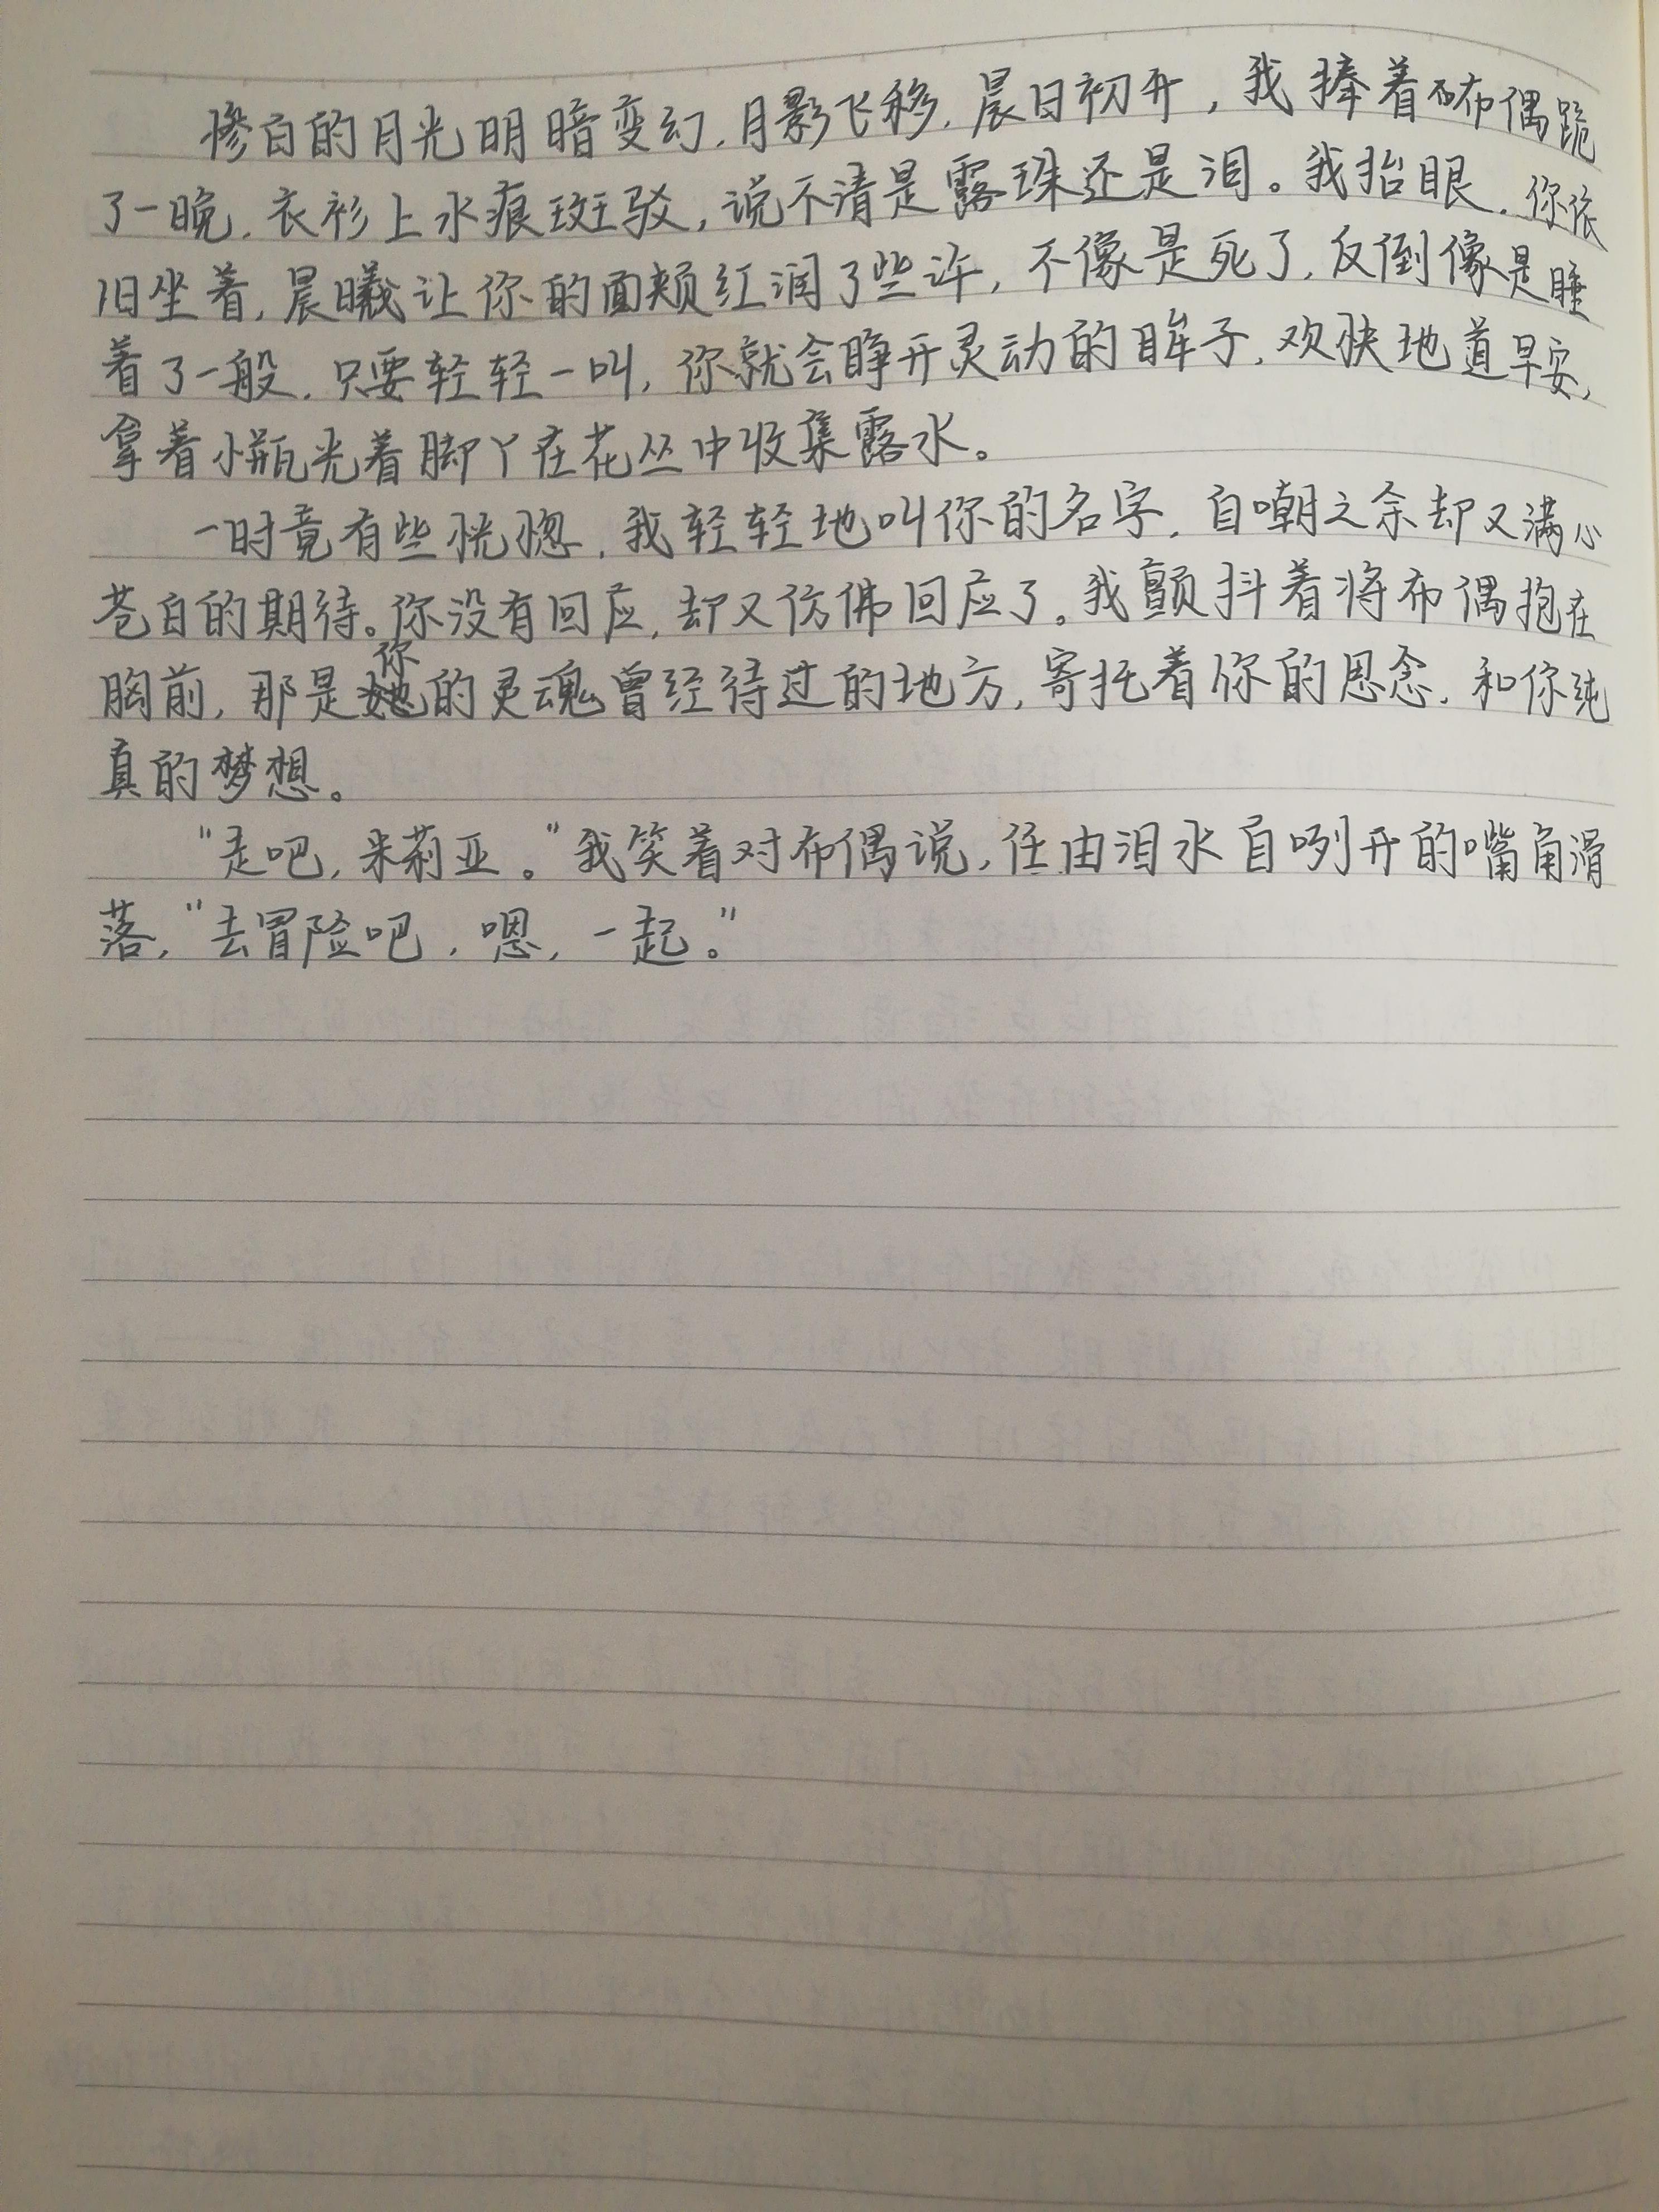 惨白的月光明暗变幻，月影飞移，晨日初开，我捧着布偶跪
了一晚，衣衫上水痕斑驳，说不清是露珠还是泪。我抬眼，你依
旧坐着，晨曦让你的面颊红润了些许，不像是死了，反倒像是睡
着了一般，只要轻轻一叫，你就会睁开灵动的眸子，欢快地道早安，
拿着小瓶光着脚丫在花丛中收集露水。
一时竟有些恍惚，我轻轻地叫你的名字，自嘲之余却又满心
苍白的期待。你没有回应，却又仿佛回应了。我颤抖着将布偶抱在
胸前，那是你的灵魂曾经待过的地方，寄托着你的思念，和你纯
真的梦想。
“走吧，米莉亚。”我笑着对布偶说，任由泪水自咧开的嘴角滑
落，“去冒险吧，嗯，一起。”